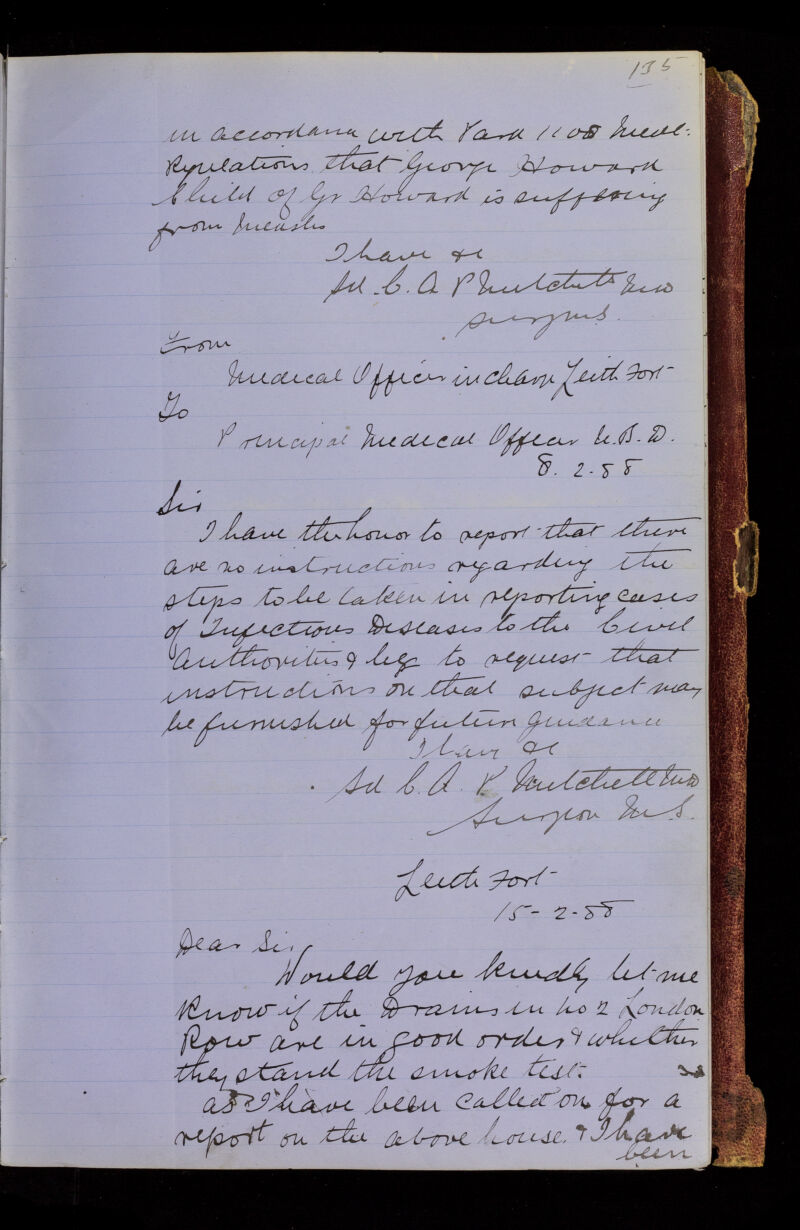 135
in accordance with Para 1108 Medl.
Regulations that George Howard
Child of Gr Howard is suffering
from Measles
I have &c
Sd. C. A. P Mitchell MD
Surgn M.S.
From
Medical Officer in charge Leith Fort
To
Principal Medical Officer N.B.D.
8. 2. 88
Sir
I have the honor to report that there
are no instructions regarding the
steps to be taken in reporting cases
of Infectious Diseases to the Civil
Authorities & beg to request that
instructions on that subject may
be furnished for future guidance
I have &c
Sd C. A. P. Mitchell MD
Surgeon M.S.
Leith Fort
15-2-88
Dear Sir,
Would you kindly let me
know if the Drains in No 2 London
Row are in good order & whether
they stand the smoke test.
as I have been called on for a
report on the above house & I have
been